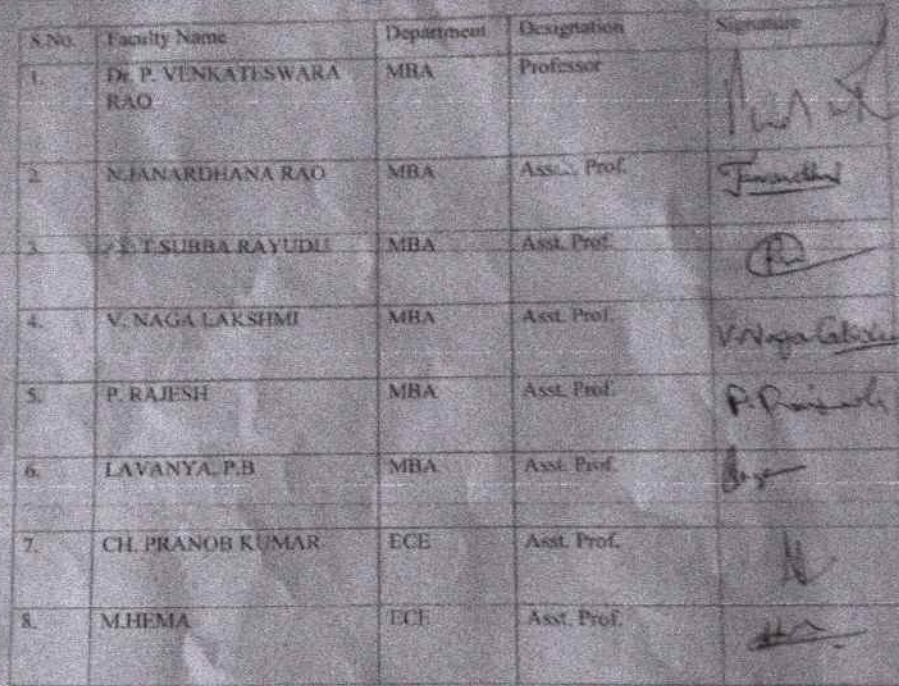 S.No. Faculty Name Department Designation Signature
1. Dr. P. VENKATESWARA MBA Professor
RAO
2. N.JANARDHANA RAO MBA Prof.
3. T.SUBBA RAYUDU MBA Asst. Prof.
4. V. NAGA LAKSHMI MBA Asst. Prof. V.Naga
5. P. RAJESH MBA Asst. Prof. P.
6. LAVANYA. P.B MBA Asst. Prof.
7. CH. PRANOB KUMAR ECE Asst. Prof.
8. M.HEMA ECE Asst. Prof.